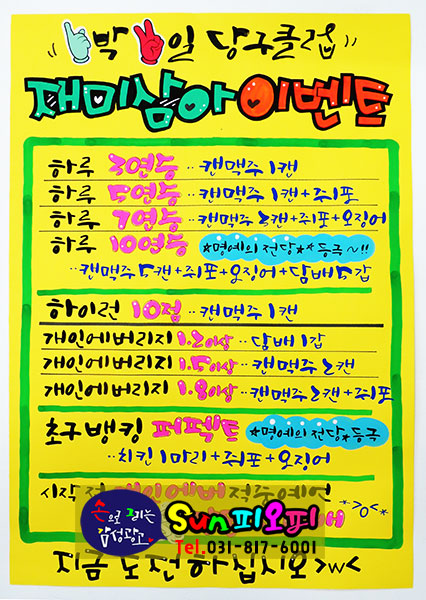 박 일 당구클럽
재미삼아 이벤트
하루 3연승 ·· 캔맥주 1캔
하루 5연승 ·· 캔맥주 1캔+쥐포
하루 7연승 ·· 캔맥주 2캔+쥐포+오징어
하루 10연승 ☆명예의 전당☆☆등극~!!
··캔맥주 5캔+쥐포+오징어+담배 5갑
하이런 10점 ·· 캔맥주 1캔
개인에버리지 1.2이상 ·· 담배 1갑
개인에버리지 1.5이상 ·· 캔맥주 2캔
개인에버리지 1.8이상 ·· 캔맥주 2캔+쥐포
초구 뱅킹 퍼펙트 ☆명예의 전당☆등극
··치킨 1마리+쥐포+오징어
시작 전
*>o<*
손으로 그리는
감성광고
Sun피오피
Tel.031-817-6001
지금 도전하십시오 >w<